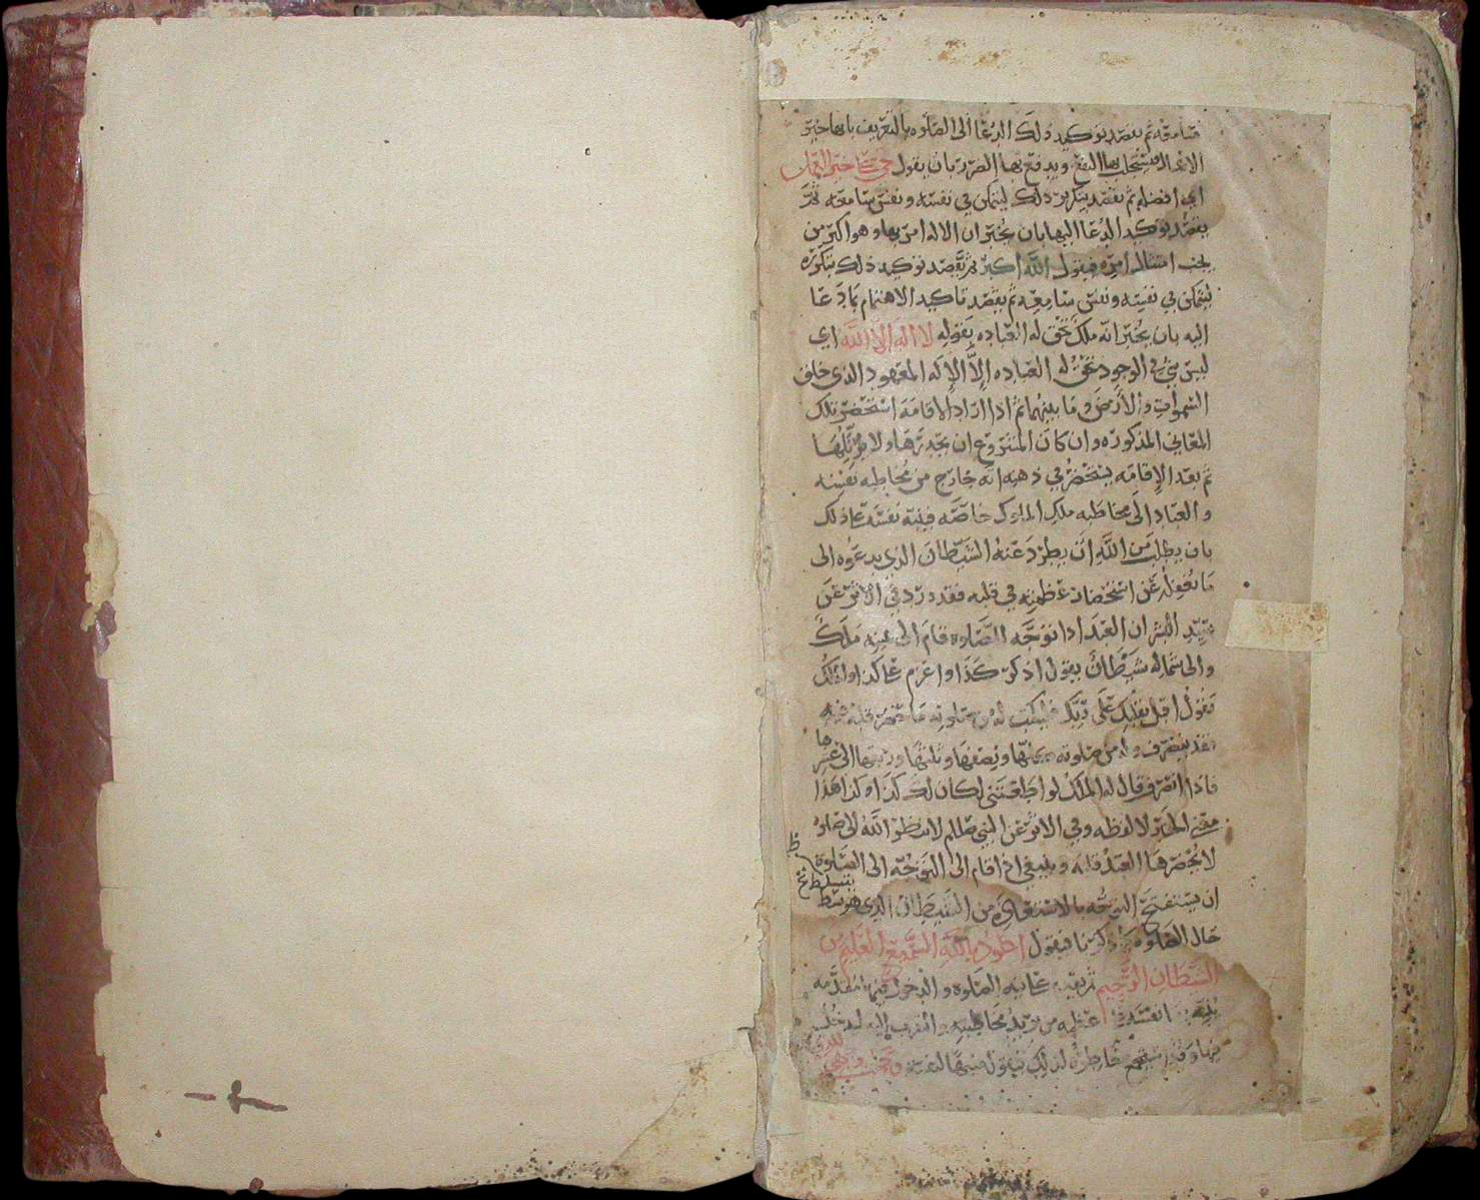 سامعه ثم يقصد توكيد ذلك الدعا الى الصلوه بالتعريف بانها خير
الاعمال فيستجلب بها النفع ويدفع بها الضرر بان يقول حي على خير العمل
اي افضله ثم يقصد بتكرير ذلك ليتمكن في نفسه ونفس سامعه ثم
يقصد توكيد الدعا اليها بان يخبر ان الاله امر بها وهو اكبر من
يجب امتثال امره فيقول الله اكبر ثم يقصد توكيد ذلك بتكريره
ليتمكن في نفسه ونفس سامعه ثم يقصد تاكيد الاهتمام بما دعا
اليه بان يخبر انه ملك تحق له العباده بقوله لا اله الا الله اي
ليس شي في الوجود تحق له العباده إلا الإله المعهود الذي خلق
السموات والأرض وما بينهما ثم اذا اراد الاقامه استحضر تلك
المعاني المذكوره وان كان المشروع ان يحدرها ولا يرتلها
ثم بعد الإقامه يستحضر في ذهنه انه خارج من مخاطبه نفسه
والعباد الى مخاطبه ملك الملوك خاصه فينبه نفسه على ذلك
بان يطلب من الله ان يطرد عنه الشيطان الذي يدعوه الى
ما يغفله عن استحضار عظمته في قلبه فقد ورد في الاثر عن
سيد البشر ان العبد اذا توجه للصلوه قام الى يمينه ملك
والى شماله شيطان يقول اذكر كذا واعزم على كذا والملك
يقول اقبل بقلبك على ربك فيكتب له من صلوته ما حضر قلبه فيه
فقد ينصرف وله من صلوته ونصفها وثلثها وربعها الى عشرها
فاذا انصرف قال له الملك لو اطعتني لكان لك كذا وكذا هذا
معنى الخبر لا لفظه وفي الاثر عن النبي صلى لا ينظر الله الى صلوه
لا يحضرها العبد قلبه وينبغي اذا قام الى التوجه الى الصلوة
ان يستفتح التوجه بالاستعاذه من الشيطان الذي
حال الصلوه فيقول اعوذ بالله السميع العليم من
الشيطان الرجيم ثم الصلوه والدخول فيها
نفسه من يريد مخاطبته
خاطره لذلك بقوله وجهت وجهي
للذي